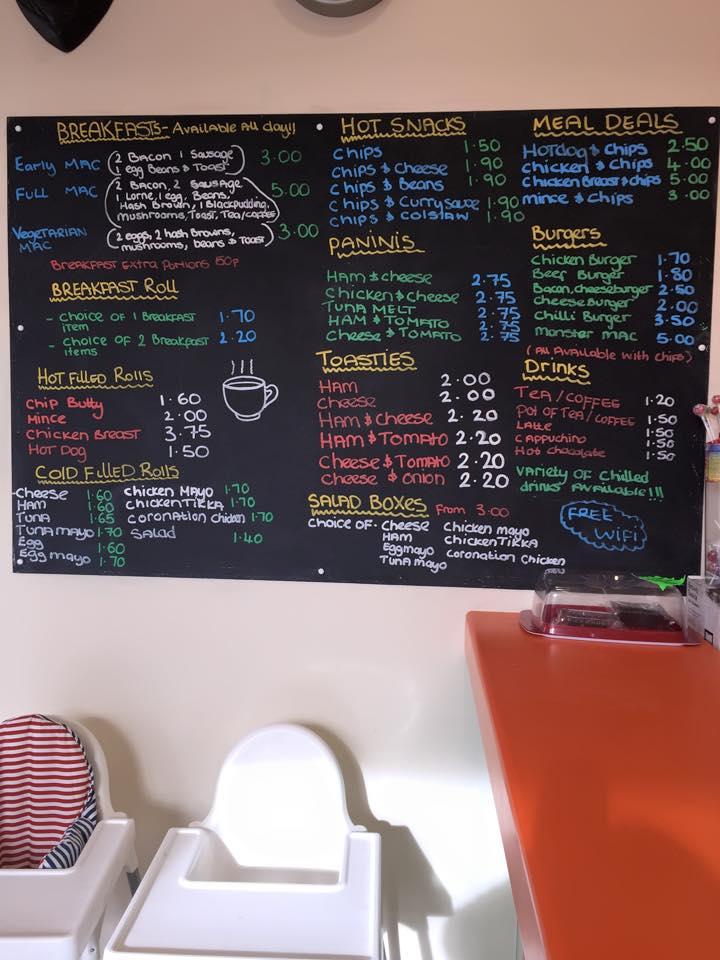 BREAKFASTS - Available All day!!
Early MAC (2 Bacon 1 Sausage 3.00
1 egg Beans & Toast)
FULL MAC (2 Bacon, 2 SAUSAge 5.00
1 Lorne, 1 egg, Beans,
Hash Brown, 1 Blackpudding,
mushrooms, Toast, Tea/COFFEE)
VEGETARIAN MAC (2 eggs, 2 hash Browns, 3.00
mushrooms, beans & Toast)
BREAKFAST Extra Portions 150p
BREAKFAST Roll
- CHOICE OF 1 BREAKFAST item 1.70
- CHOICE OF 2 BREAKFAST items 2.20
HOT Filled Rolls
CHIP Butty 1.60
Mince 2.00
Chicken Breast 3.75
HOT DOG 1.50
COLD Filled Rolls
CHEESE 1.60
HAM 1.60
TUNA 1.65
TUNA mayo 1.70
Egg 1.60
Egg mayo 1.70
Chicken Mayo 1.70
CHICKEN TIKKA 1.70
CORONATION CHICKEN 1.70
SALAD 1.40
HOT SNACKS
CHIPS 1.50
CHIPS & Cheese 1.90
CHIPS & Beans 1.90
CHIPS & Curry sauce 1.90
CHIPS & Colslaw 1.90
PANINIS
HAM & Cheese 2.75
Chicken & Cheese 2.75
TUNA MELT 2.75
HAM & TOMATO 2.75
Cheese & TOMATO 2.75
TOASTIES
HAM 2.00
Cheese 2.00
HAM & Cheese 2.20
HAM & TOMATO 2.20
Cheese & TOMATO 2.20
Cheese & Onion 2.20
SALAD BOXES From 3.00
CHOICE OF. Cheese
HAM
Eggmayo
Tuna mayo
Chicken mayo
Chicken TIKKA
Coronation Chicken
MEAL DEALS
HOTdog & Chips 2.50
Chicken & Chips 4.00
Chicken Breast & Chips 5.00
mince & Chips 3.00
Burgers
Chicken Burger 1.70
Beef Burger 1.80
Bacon, cheeseburger 2.50
Cheese Burger 2.00
Chilli Burger 3.50
Monster MAC 5.00
(All Available with chips)
Drinks
TEA / COFFEE 1.20
Pot OF TEA / COFFEE 1.50
Latte 1.50
CAPPUCHINO 1.50
Hot chocolate 1.50
VARIETY OF Chilled
drinks AVAILABLE!!!
FREE
WIFI